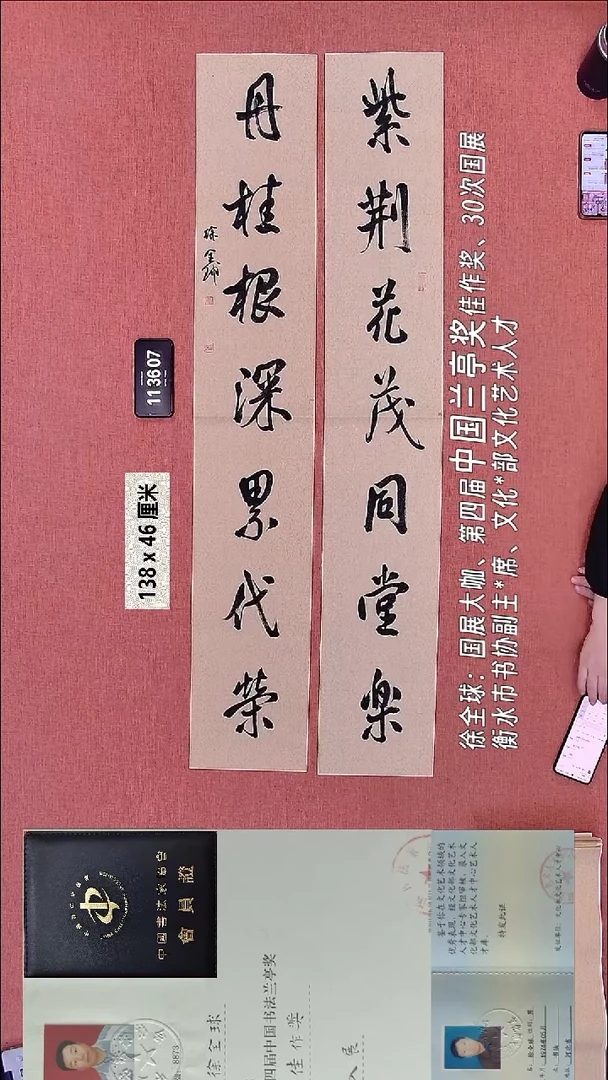 紫荆花茂同堂楽
丹桂根深累代荣
徐全球
113607
138 x 46 厘米
徐全球：国展大咖、第四届中国兰亭奖佳作奖、30次国展
衡水市书协副主*席、文化*部文化艺术人才
中國書法家協會
會員證
8873
徐全球
四届中国书法兰亭奖
佳作奖
入展
特发此证